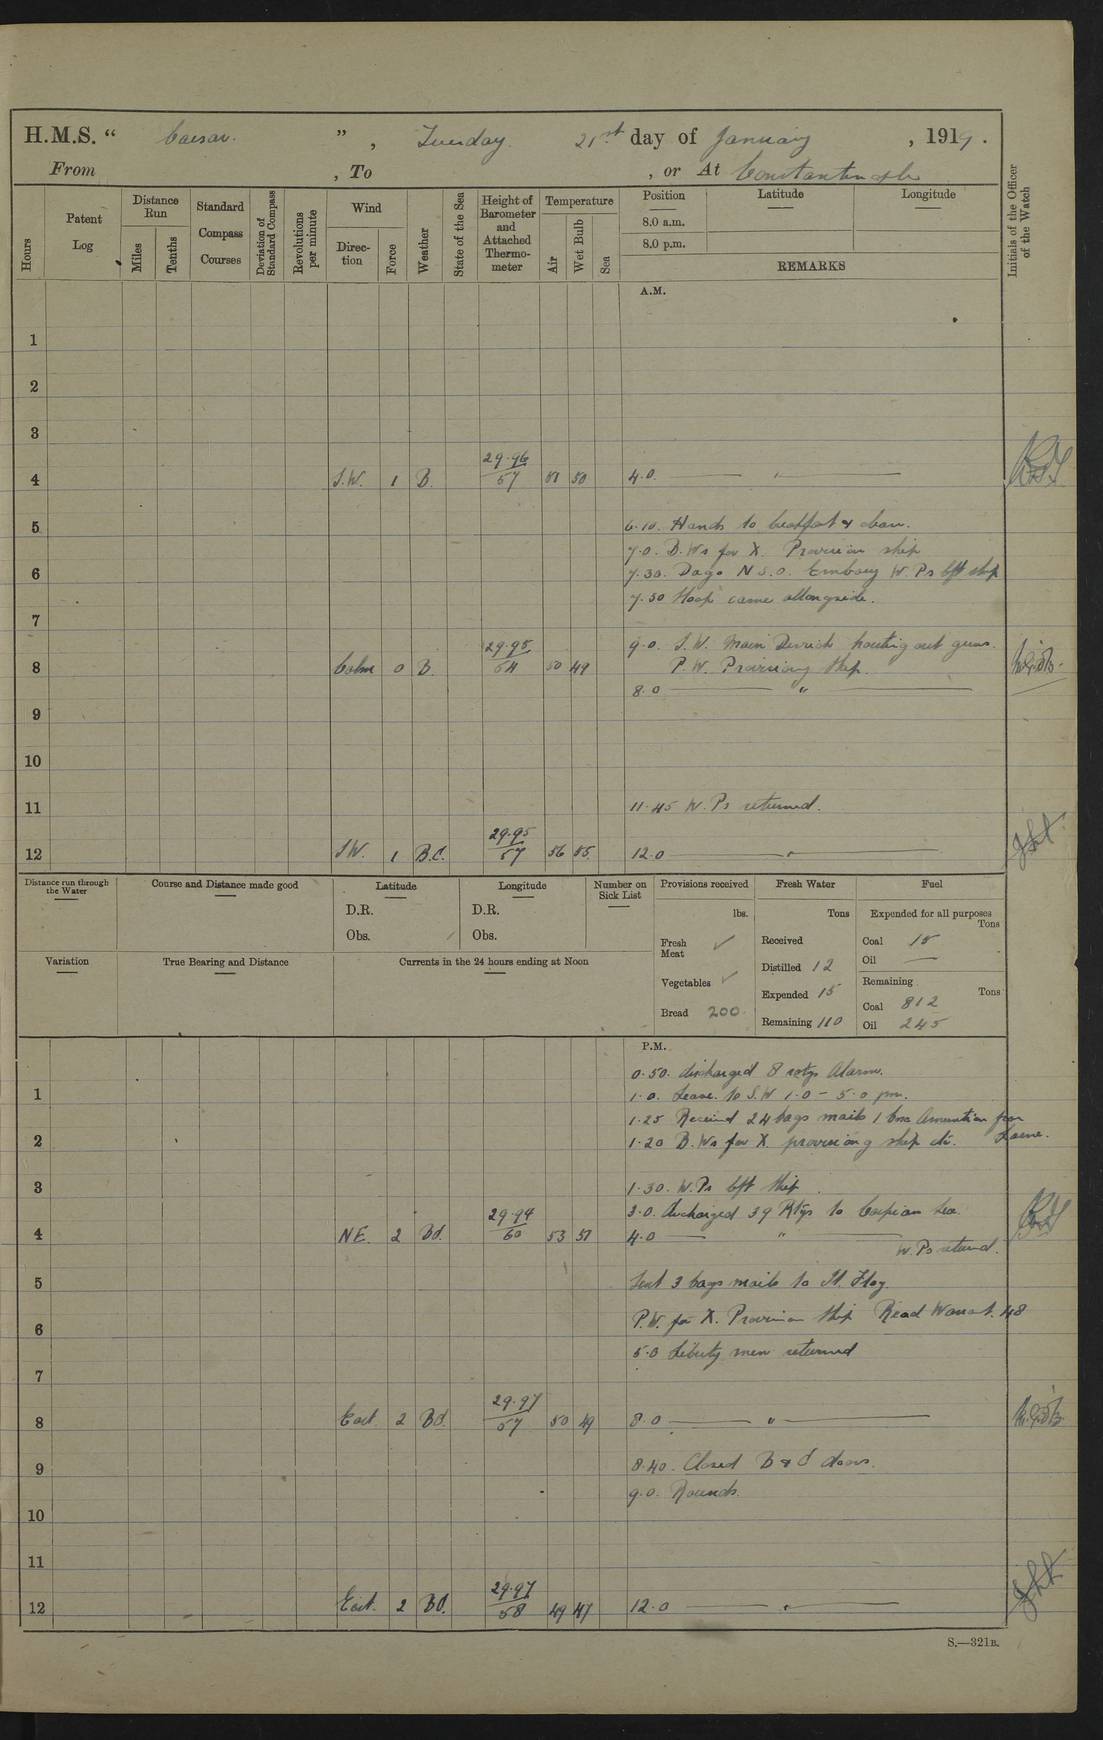 H.M.S. “ Caesar. ” , Tuesday 21st day of January , 1919.
From , To , or At Constantinople
Hours
Patent Log
Distance Run
Miles
Tenths
Standard Compass Courses
Deviation of Standard Compass
Revolutions per minute
Wind
Direction
Force
Weather
State of the Sea
Height of Barometer and Attached Thermometer
Temperature
Air
Wet Bulb
Sea
Position
Latitude
Longitude
8.0 a.m.
8.0 p.m.
REMARKS
Initials of the Officer of the Watch
A.M.
1
2
3
4 S.W. 1 B. 29.96 57 51 50 4.0. "
5 6.10. Hands to breakfast & clean.
7.0. B.Ws for X. Provision ship
6 7.30. Dago N.S.O. Embassy W.Ps left ship
7.50 came alongside.
7
9.0. S.W. Main Derrick hoisting out guns.
8 Calm 0 B. 29.95 54 50 49 P.W. Provisioning Ship.
8.0 "
9
10
11 11.45 W.Ps returned.
12 SW. 1 B.C. 29.95 57 56 55 12.0 "
Distance run through the Water
Course and Distance made good
Latitude
D.R.
Obs.
Longitude
D.R.
Obs.
Number on Sick List
Provisions received
lbs.
Fresh Meat ✓
Vegetables ✓
Bread 200
Fresh Water
Tons
Received
Distilled 12
Expended 15
Remaining 110
Fuel
Expended for all purposes
Tons
Coal 15
Oil —
Remaining
Tons
Coal 812
Oil 245
Variation
True Bearing and Distance
Currents in the 24 hours ending at Noon
P.M.
0.50. discharged 8 rtgs Alarm.
1 1.0. Leave to S.W 1.0 – 5.0 pm.
1.25 Received 24 bags mails 1 box Amunition from Larne.
2 1.20 B.Ws for X. provisioning ship etc.
3 1.30. W.Ps left ship
3.0. discharged 39 Rtgs to Caspian Sea
4 NE. 2 Bd. 29.94 60 53 51 4.0 "
W.Ps returned.
5 Sent 3 bags mails to Flag.
P.W. for X. Provision Ship Read Warrant. 48
6
5.0 Liberty men returned
7
8 East 2 Bd. 29.97 57 50 49 8.0 "
9 8.40. Closed B & C doors.
9.0. Rounds.
10
11
12 East. 2 Bd. 29.97 58 49 47 12.0 "
S.—321B.